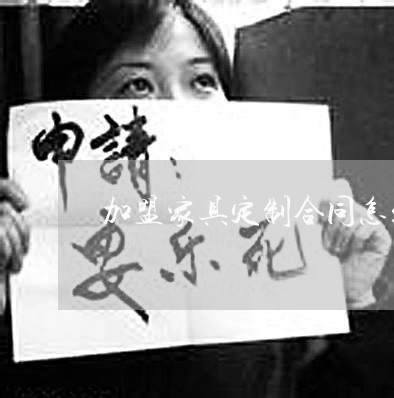 申請：
加盟家具定制合同怎
安乐死